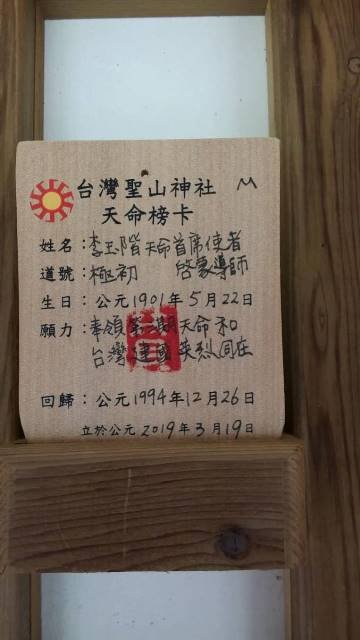 台灣聖山神社
天命榜卡
姓名：李玉階 天命首席使者
道號：極初 啓蒙導師
生日：公元1901年5月22日
願力：奉領第三期天命和
台灣建國英烈同在
回歸：公元1994年12月26日
立於公元2019年3月19日